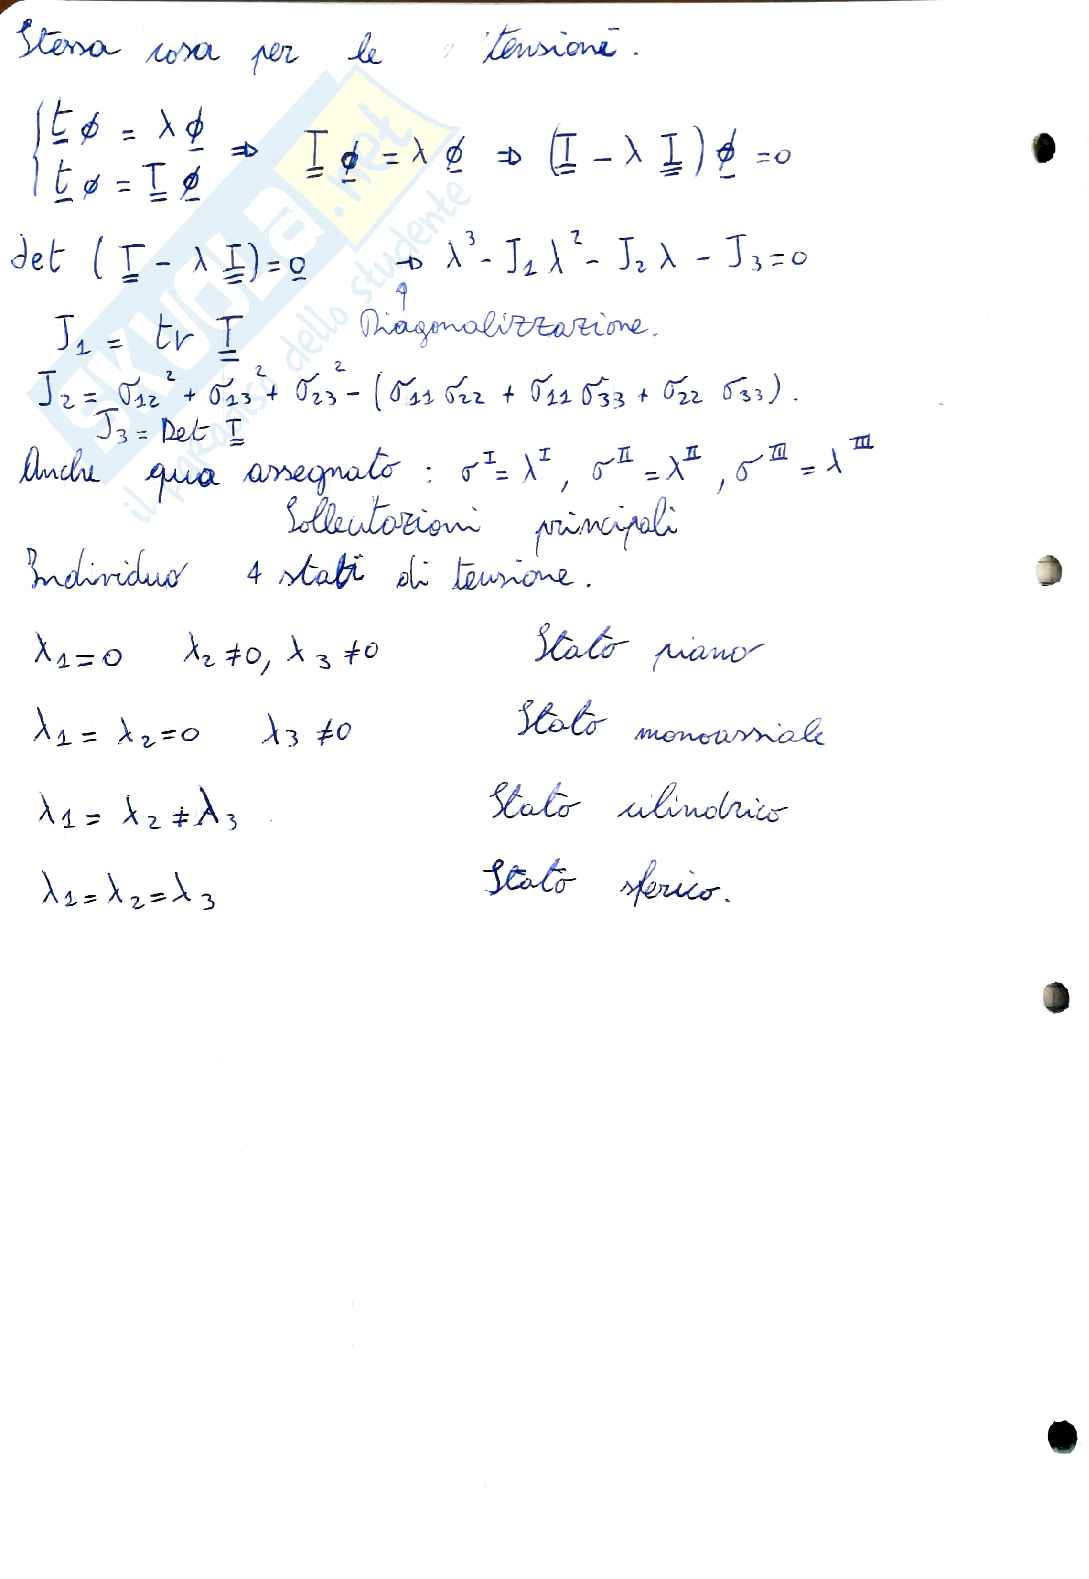 Stessa cosa per le tensioni.
{ t̲ϕ = λ ϕ̲
{ t̲ϕ = T̲̲ ϕ̲ ⇒ T̲̲ ϕ̲ = λ ϕ̲ ⇒ (T̲̲ - λ I̲̲) ϕ̲ = 0
det (T̲̲ - λ I̲̲) = 0̲ → λ³ - J₁ λ² - J₂ λ - J₃ = 0
J₁ = tr T̲̲ ↑ Diagonalizzazione.
J₂ = σ₁₂² + σ₁₃² + σ₂₃² - (σ₁₁ σ₂₂ + σ₁₁ σ₃₃ + σ₂₂ σ₃₃).
J₃ = Det T̲̲
Anche qua assegnato : σᴵ = λᴵ, σᴵᴵ = λᴵᴵ, σᴵᴵᴵ = λᴵᴵᴵ
Sollecitazioni principali
Individuo 4 stati di tensione.
λ₁ = 0 λ₂ ≠ 0, λ₃ ≠ 0 Stato piano
λ₁ = λ₂ = 0 λ₃ ≠ 0 Stato monoassiale
λ₁ = λ₂ ≠ λ₃ Stato cilindrico
λ₁ = λ₂ = λ₃ Stato sferico.
SKUOLA.net
il paradiso dello studente